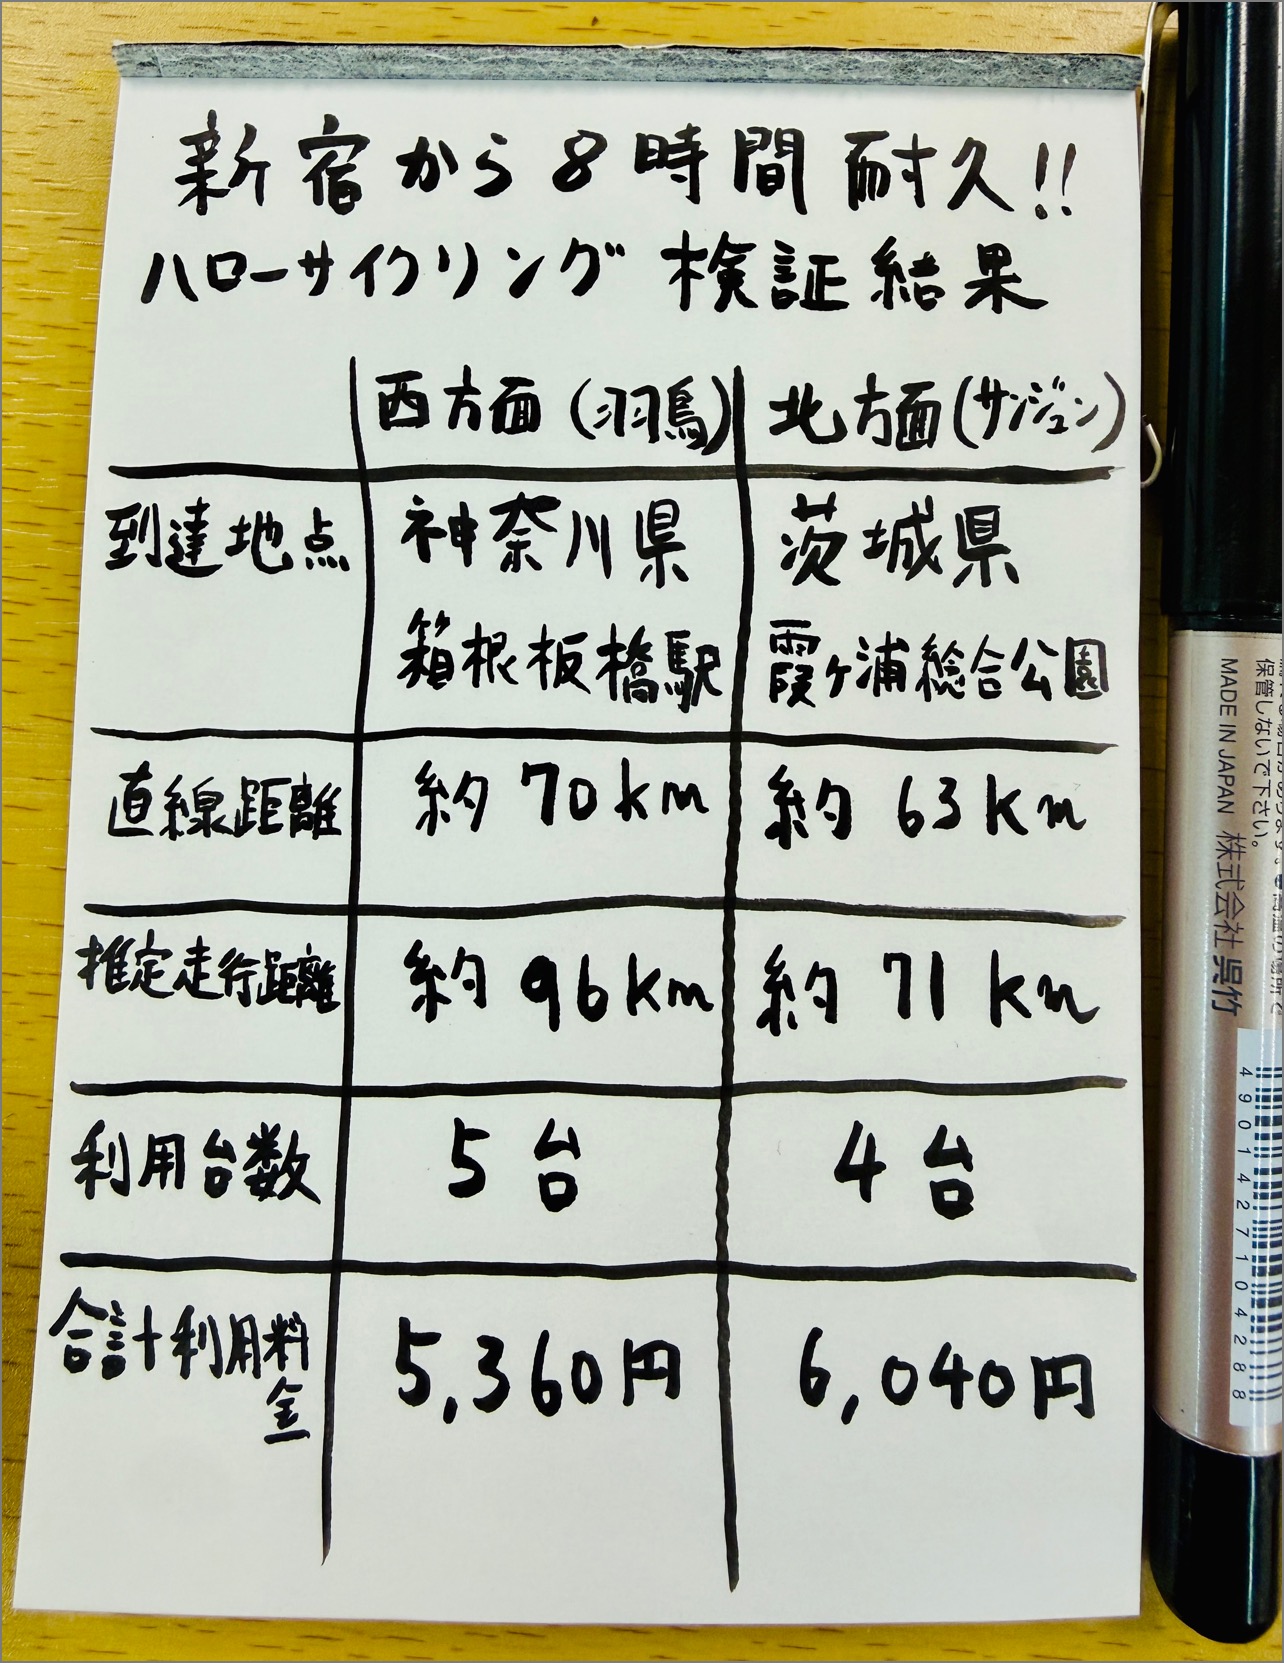 新宿から8時間耐久!!
ハローサイクリング検証結果
西方面(羽鳥) 北方面(サンジュン)
到達地点 神奈川県 茨城県
箱根板橋駅 霞ヶ浦総合公園
直線距離 約70km 約63km
推定走行距離 約96km 約71km
利用台数 5台 4台
合計利用料 5,360円 6,040円
金
保管しないで下さい。
MADE IN JAPAN 株式会社 呉竹
4901427104288